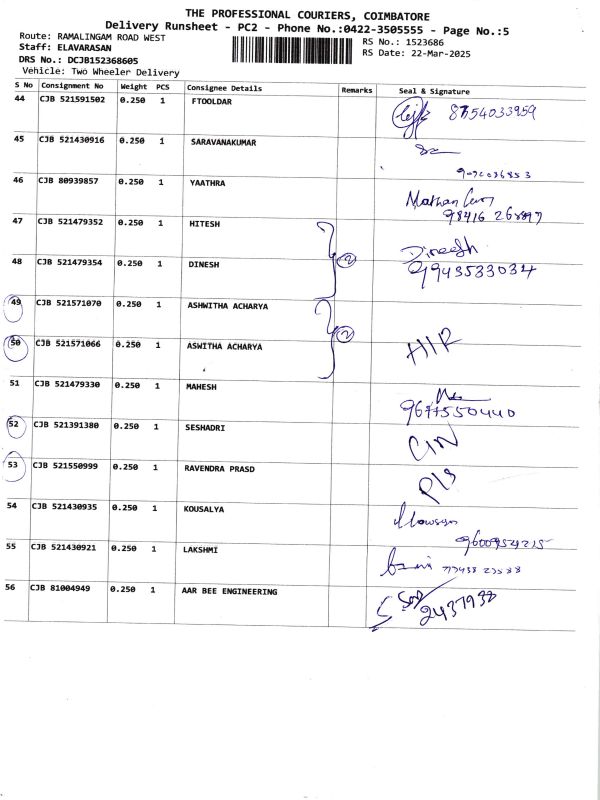 THE PROFESSIONAL COURIERS, COIMBATORE
Delivery Runsheet - PC2 - Phone No.:0422-3505555 - Page No.:5
Route: RAMALINGAM ROAD WEST
RS No.: 1523686
Staff: ELAVARASAN
RS Date: 22-Mar-2025
DRS No.: DCJB152368605
Vehicle: Two Wheeler Delivery
S No Consignment No Weight PCS Consignee Details Remarks Seal & Signature
44 CJB 521591502 0.250 1 FTOOLDAR 8754033959
45 CJB 521430916 0.250 1 SARAVANAKUMAR
46 CJB 80939857 0.250 1 YAATHRA
47 CJB 521479352 0.250 1 HITESH
48 CJB 521479354 0.250 1 DINESH 2 Dineesh
9943533034
49 CJB 521571070 0.250 1 ASHWITHA ACHARYA
50 CJB 521571066 0.250 1 ASWITHA ACHARYA 2 HIR
51 CJB 521479330 0.250 1 MAHESH
9677550440
52 CJB 521391380 0.250 1 SESHADRI CIN
53 CJB 521550999 0.250 1 RAVENDRA PRASD
54 CJB 521430935 0.250 1 KOUSALYA
55 CJB 521430921 0.250 1 LAKSHMI
56 CJB 81004949 0.250 1 AAR BEE ENGINEERING
2437938